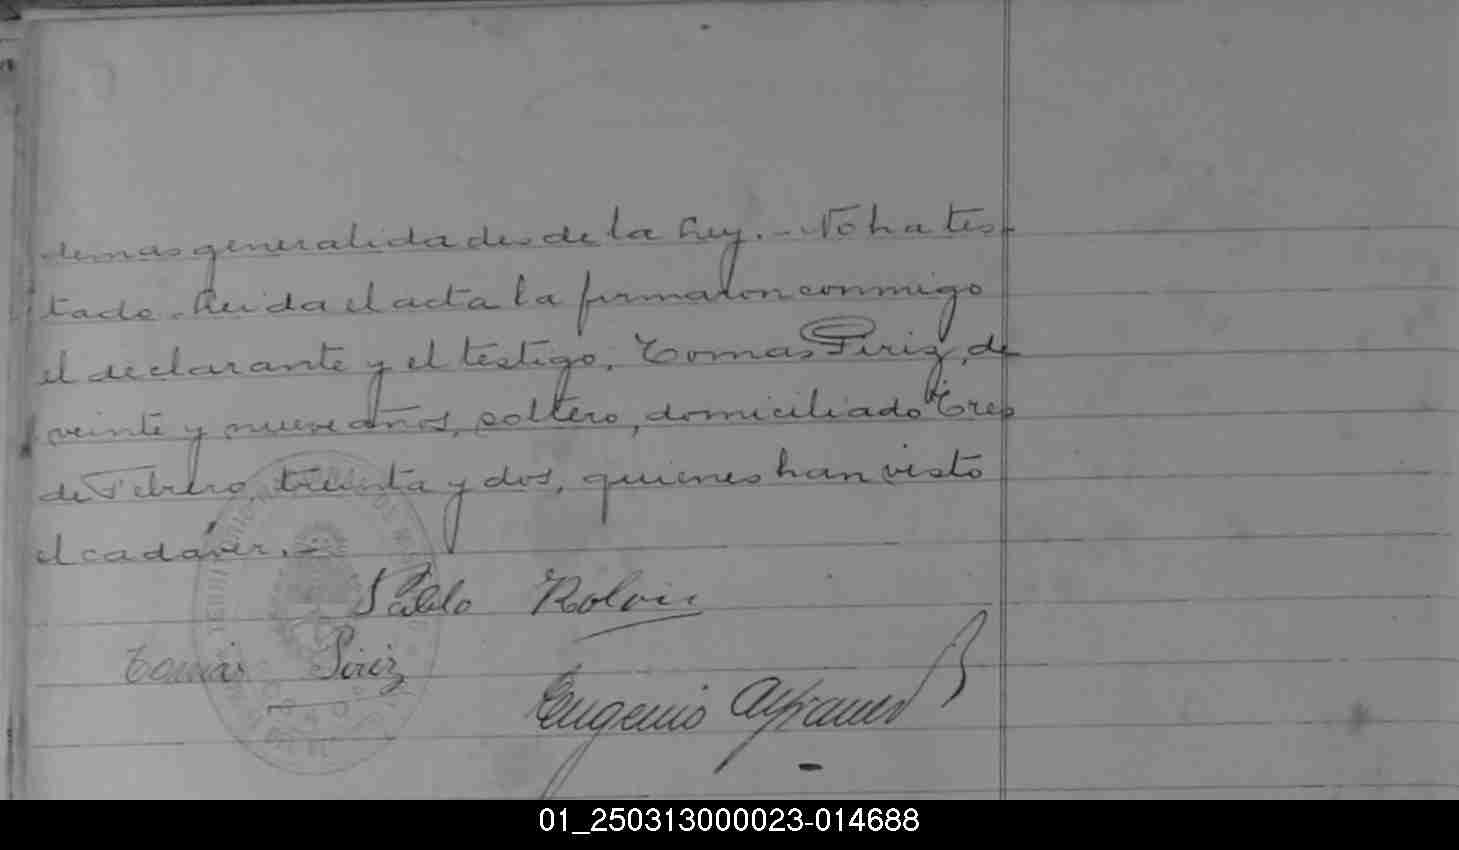 demas generalidades de la Ley. - No ha tes-
tado. - Leida el acta la firmaron conmigo
el declarante y el testigo, Tomas Piriz, de
veinte y nueve años, soltero, domiciliado Tres
de Febrero, treinta y dos, quienes han visto
el cadáver. -
Pablo
Tomás Piriz
Eugenio
01_250313000023-014688